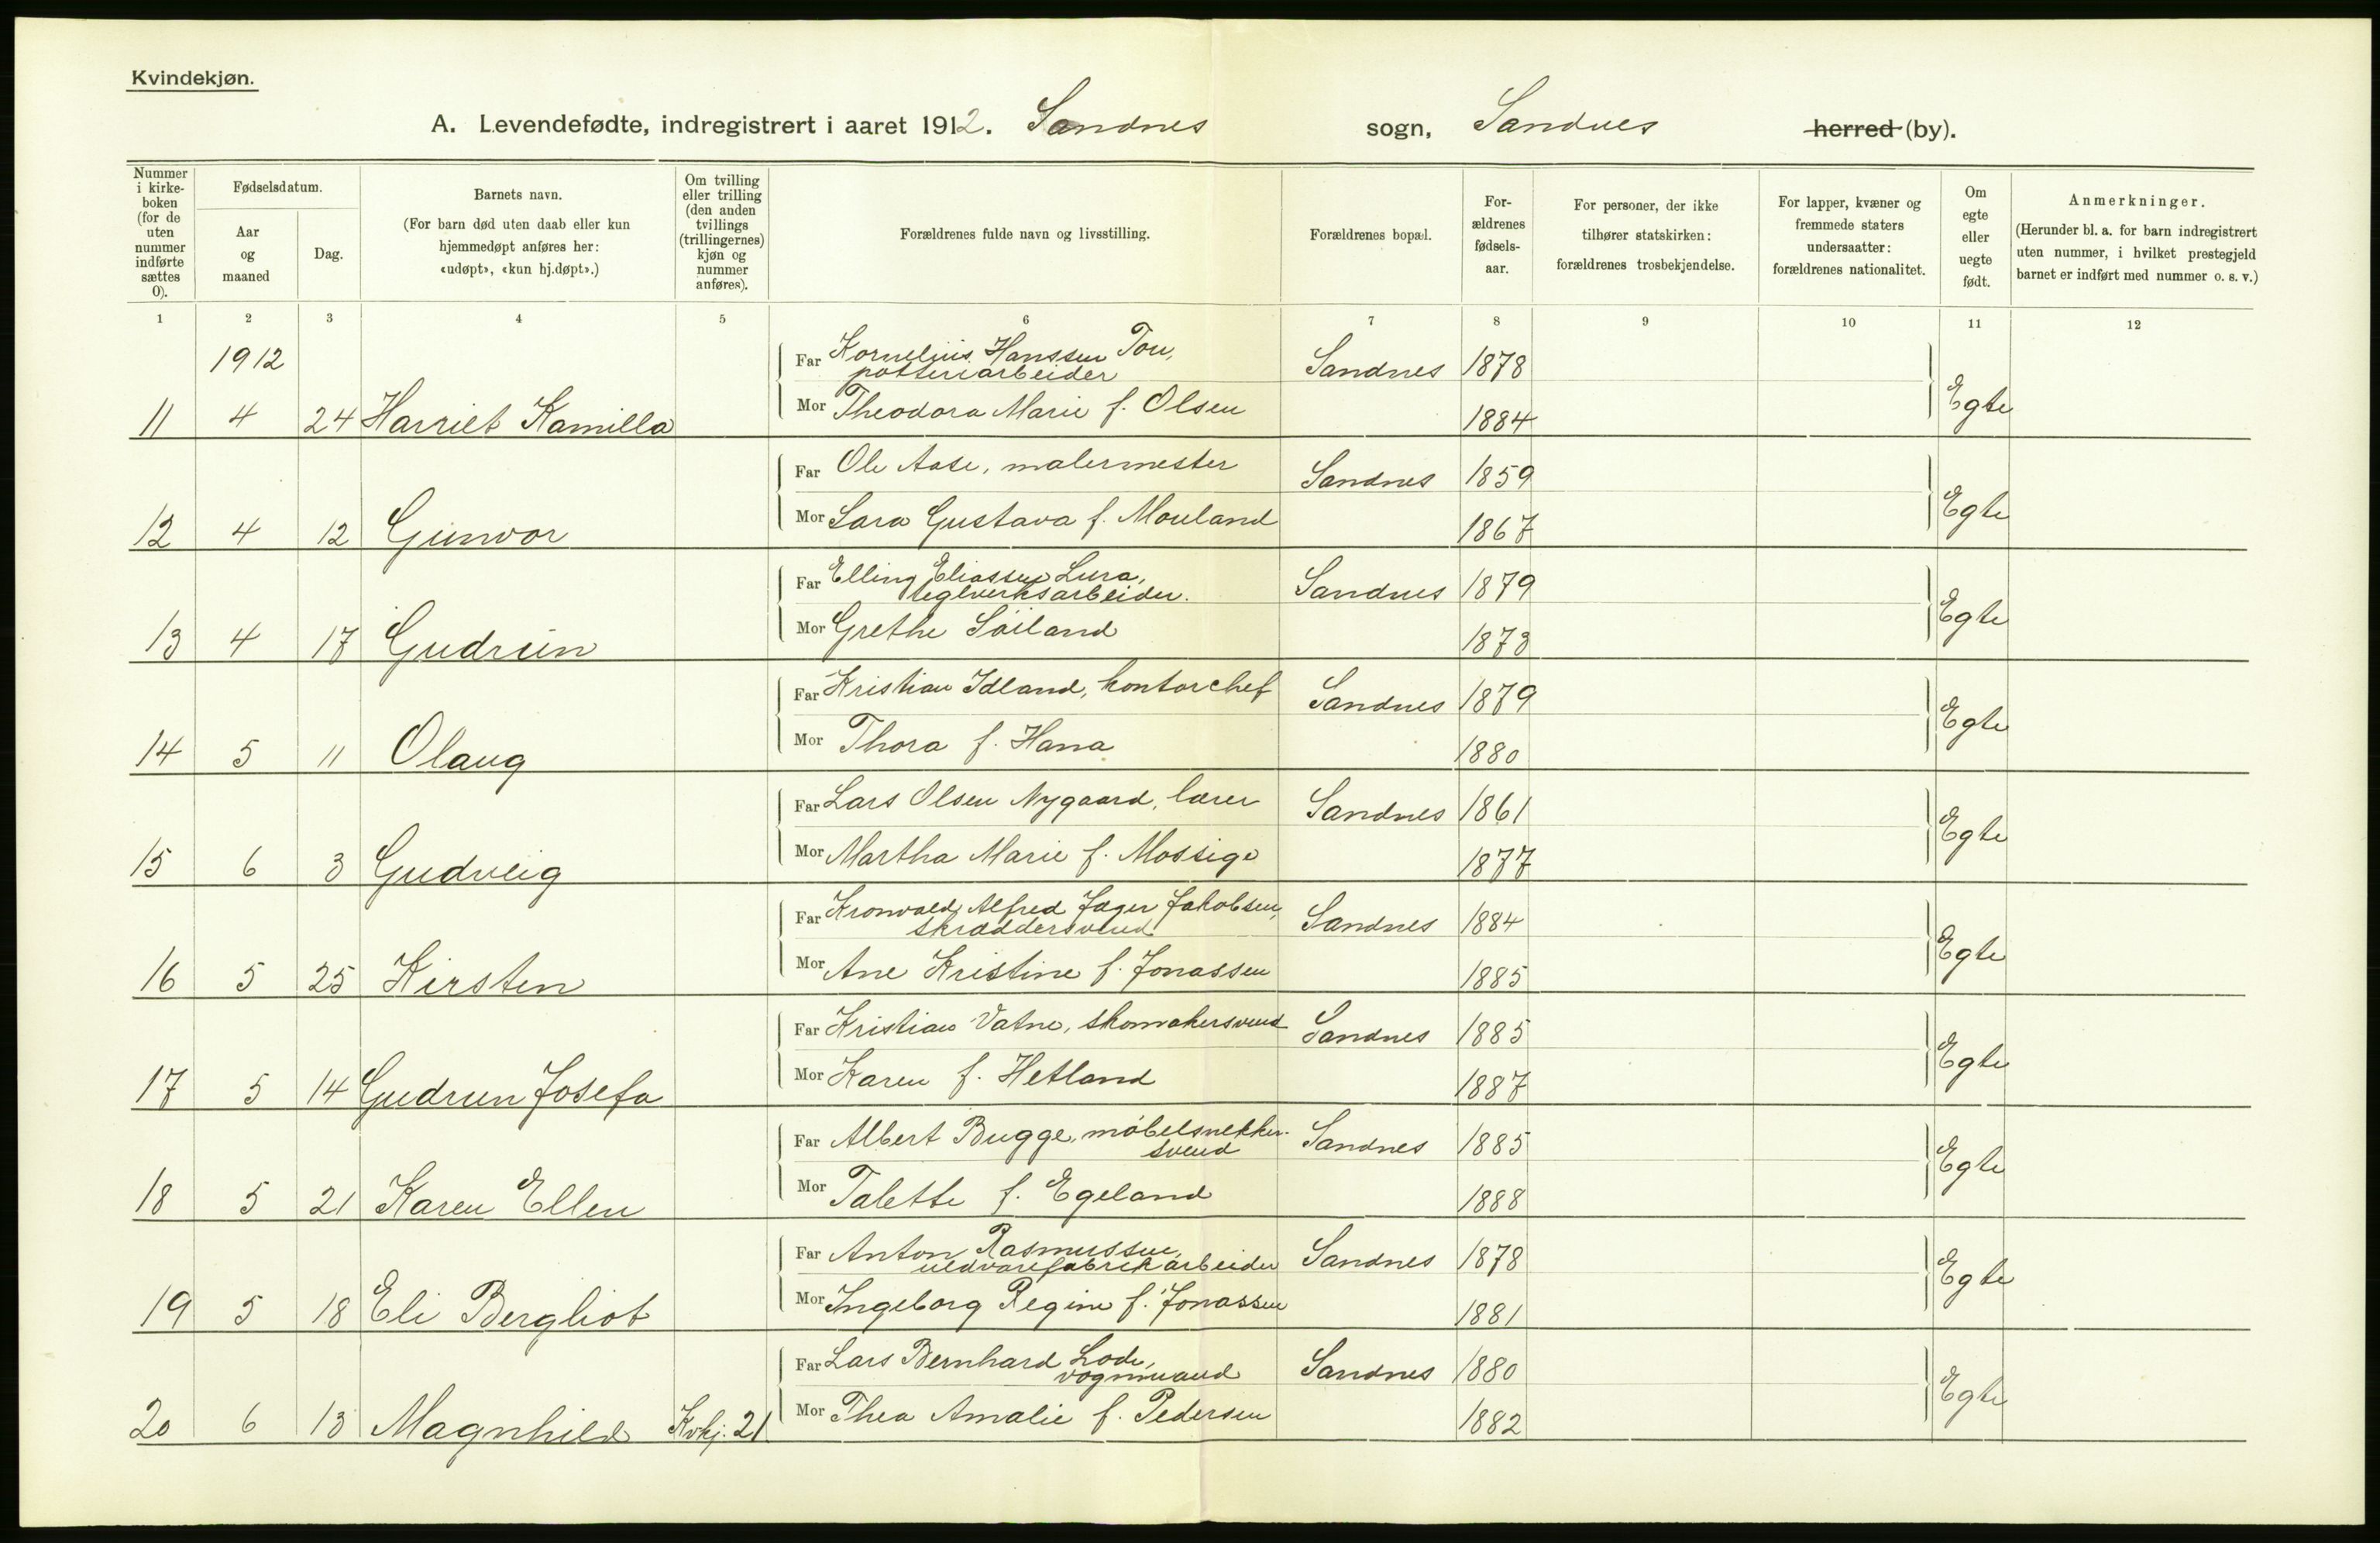 Kvindekjøn.
A. Levendefødte, indregistrert i aaret 1912. Sandnes sogn, Sandnes herred (by).
Nummer i kirke-boken (for de uten nummer indførte sættes 0).
Fødselsdatum.
Aar og maaned
Dag.
Barnets navn.
(For barn død uten daab eller kun hjemmedøpt anføres her: «udøpt», «kun hj.døpt».)
Om tvilling eller trilling (den anden tvillings (trillingernes) kjøn og nummer anføres).
Forældrenes fulde navn og livsstilling.
Forældrenes bopæl.
For-ældrenes fødsels-aar.
For personer, der ikke tilhører statskirken: forældrenes trosbekjendelse.
For lapper, kvæner og fremmede staters undersaatter: forældrenes nationalitet.
Om egte eller uegte født.
Anmerkninger.
(Herunder bl. a. for barn indregistrert uten nummer, i hvilket prestegjeld barnet er indført med nummer o. s. v.)
1 2 3 4 5 6 7 8 9 10 11 12
1912
Far Kornelius Hanssen Tou, Sandnes 1878
potteriarbeider
11 4 24 Harriet Kamilla Mor Theodora Marie f. Olsen 1884 Egte
Far Ole Aase, malermester Sandnes 1859
12 4 12 Gunvor Mor Sara Gustava f. Mouland 1867 Egte
Far Elling Eliassen Lura, Sandnes 1879
teglverksarbeider.
13 4 17 Gudrun Mor Grethe Söiland 1873 Egte
Far Kristian Idland, kontorchef Sandnes 1879
14 5 11 Olaug Mor Thora f. Hana 1880 Egte
Far Lars Olsen Nygaard, lærer Sandnes 1861
15 6 3 Gudveig Mor Martha Marie f. Mossige 1877 Egte
Far Kronvald Alfred Jæger Jakobsen, Sandnes 1884
skræddersvend
16 5 25 Kirsten Mor Ane Kristine f. Jonassen 1885 Egte
Far Kristian Vatne, skomakersvend Sandnes 1885
17 5 14 Gudrun Josefa Mor Karen f. Hetland 1887 Egte
Far Albert Bugge, möbelsnekker- Sandnes 1885
svend
18 5 21 Karen Ellen Mor Talette f. Egeland 1888 Egte
Far Anton Rasmussen, Sandnes 1878
uldvarefabrikarbeider
19 5 18 Eli Bergliot Mor Ingeborg Regine f. Jonassen 1881 Egte
Far Lars Bernhard Lode, Sandnes 1880
vognmand
20 6 13 Magnhild Kvkj. 21 Mor Thea Amalie f. Pedersen 1882 Egte